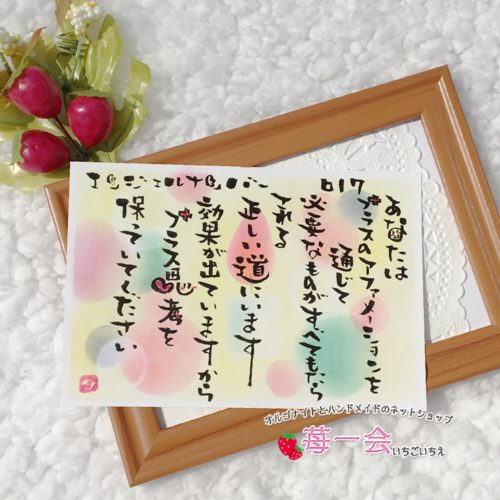 エンジェルナンバー 017
あなたは
プラスのアファメーションを
通じて
必要なものがすべてもたら
される
正しい道にいます
効果が出ていますから
プラス思考を
保っていてください
オルゴナイトとハンドメイドのネットショップ
苺一会 いちごいちえ